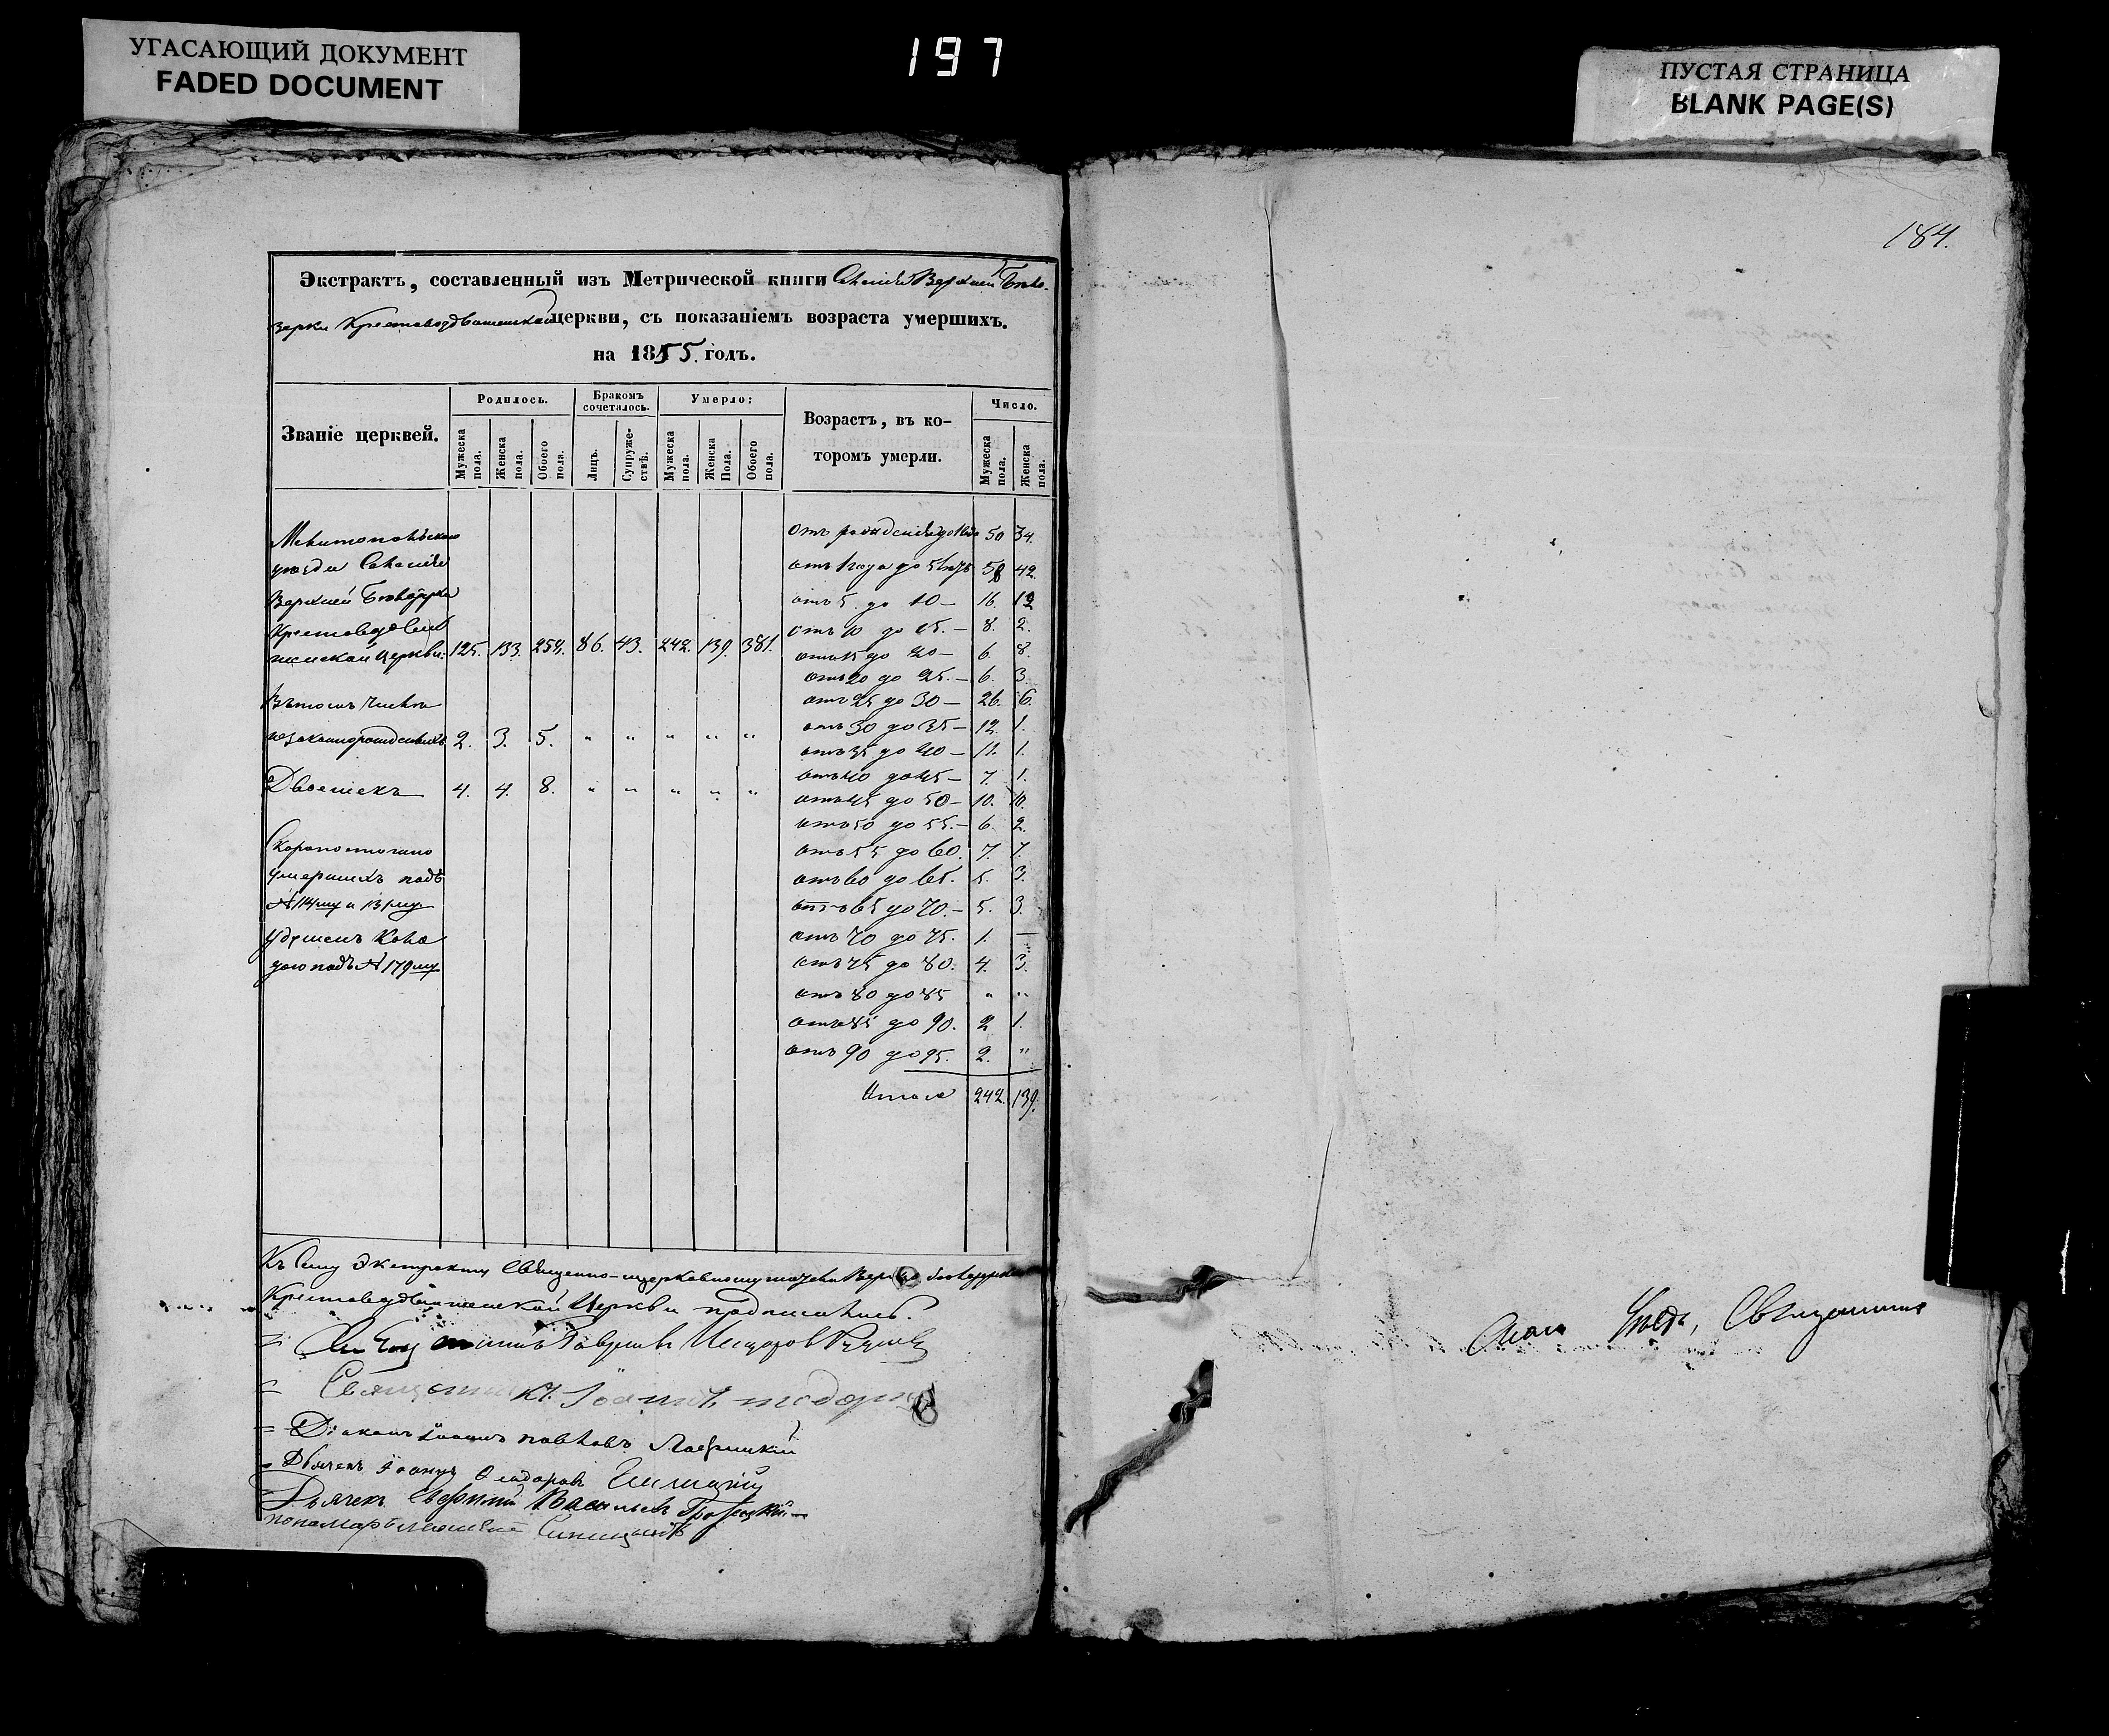 УГАСАЮЩИЙ ДОКУМЕНТ
FADED DOCUMENT
197
ПУСТАЯ СТРАНИЦА
BLANK PAGE(S)
184.
Экстрактъ, составленный изъ Метрической книги Селенія Верхней Бѣло-
зерки Крестовоздвиженской церкви, съ показаніемъ возраста умершихъ.
на 1855. годъ.
Званіе церквей.
Родилось.
Мужеска пола.
Женска пола.
Обоего пола.
Бракомъ сочеталось.
Лицъ.
Супружествъ.
Умерло:
Мужеска пола.
Женска Пола.
Обоего пола.
Возрастъ, въ ко-
торомъ умерли.
Число.
Мужеска пола.
Женска пола.
Мелитопольскаго
уѣзда Селенія
Верхней Бѣлозерки
Крестовоздви
женской Церкви: 125. 133. 258. 86. 43. 242. 139. 381.
Въ томъ числѣ
незаконорожденныхъ 2. 3. 5. " " " " "
Двоешекъ 4. 4. 8. " " " " "
Скоропостижно
умершихъ подъ
№ 114му и 131му
подъ № 179му
Отъ рожденія до 50 34.
отъ 1 года до 5 лѣтъ 58 42.
отъ 5. до 10 – 16. 12
отъ 10 до 15. – 8. 2.
отъ 15 до 20 – 6. 8.
отъ 20 до 25. – 6. 3.
отъ 25 до 30 – 26. 6.
отъ 30 до 35 – 12. 1.
отъ 35 до 40 – 11. 1.
отъ 40 до 45 – 7. 1.
отъ 45 до 50 – 10. 10.
отъ 50 до 55. – 6. 2.
отъ 55 до 60. 7. 7.
отъ 60 до 65. 5. 3.
отъ 65 до 70. – 5. 3.
отъ 70 до 75. 1. —
отъ 75 до 80. 4. 3.
отъ 80 до 85 " "
отъ 85 до 90. 2 1.
отъ 90 до 95. 2. "
Итого 242. 139.
Къ сему Экстракту Священно-церковнослужители
Крестовоздвиженской Церкви подписались:
Священникъ Іоаннъ
Діаконъ Іоаннъ Павловъ
Дьячекъ Іоаннъ
Дьячекъ Евфимій Васильевъ
пономарь